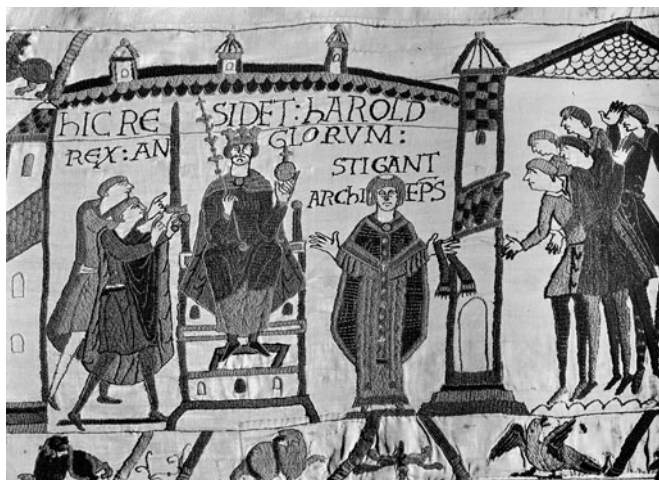 hIC RE SIDET: hAROLD
REX: AN GLORVM:
STIGANT
ARChI EP̄S